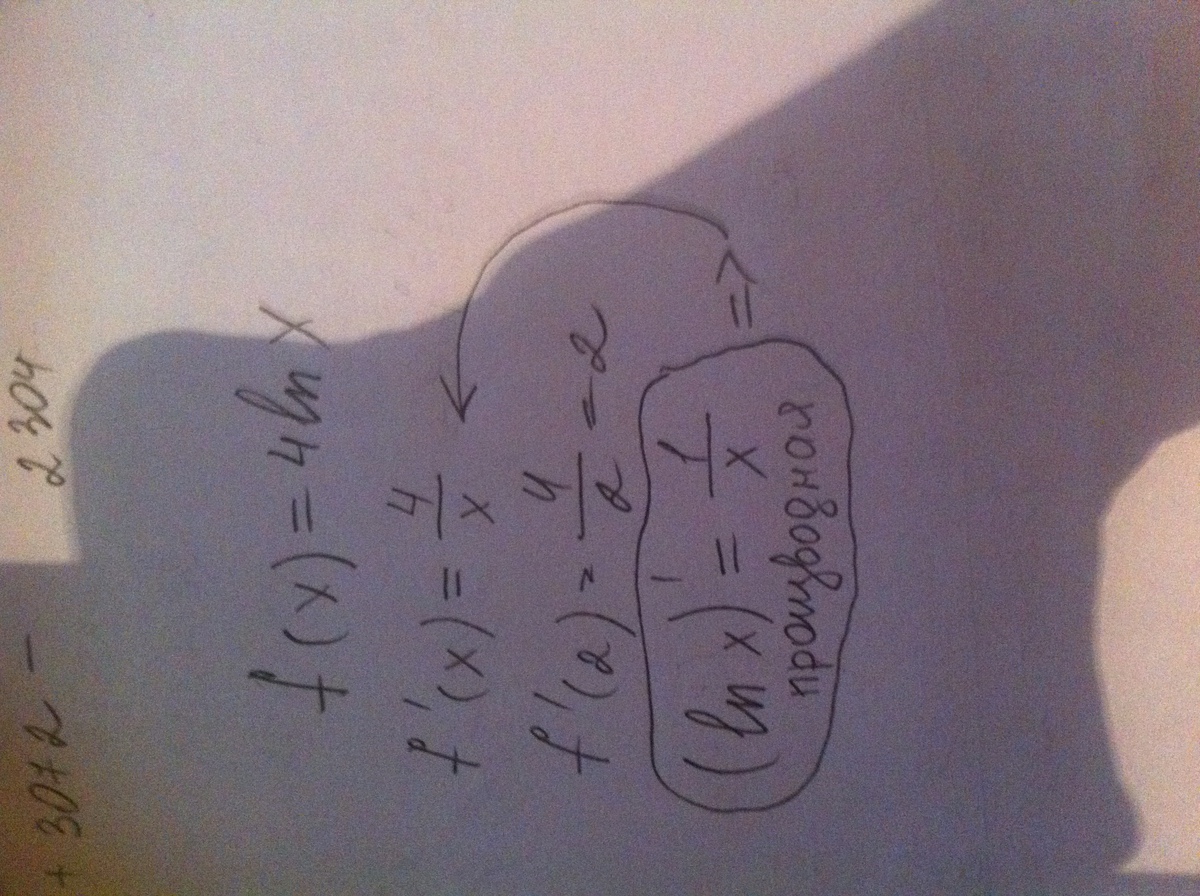 + 3072 - 2304
f(x) = 4 ln x
f'(x) = 4/x
f'(2) = 4/2 = 2
(ln x)' = 1/x =>
производная